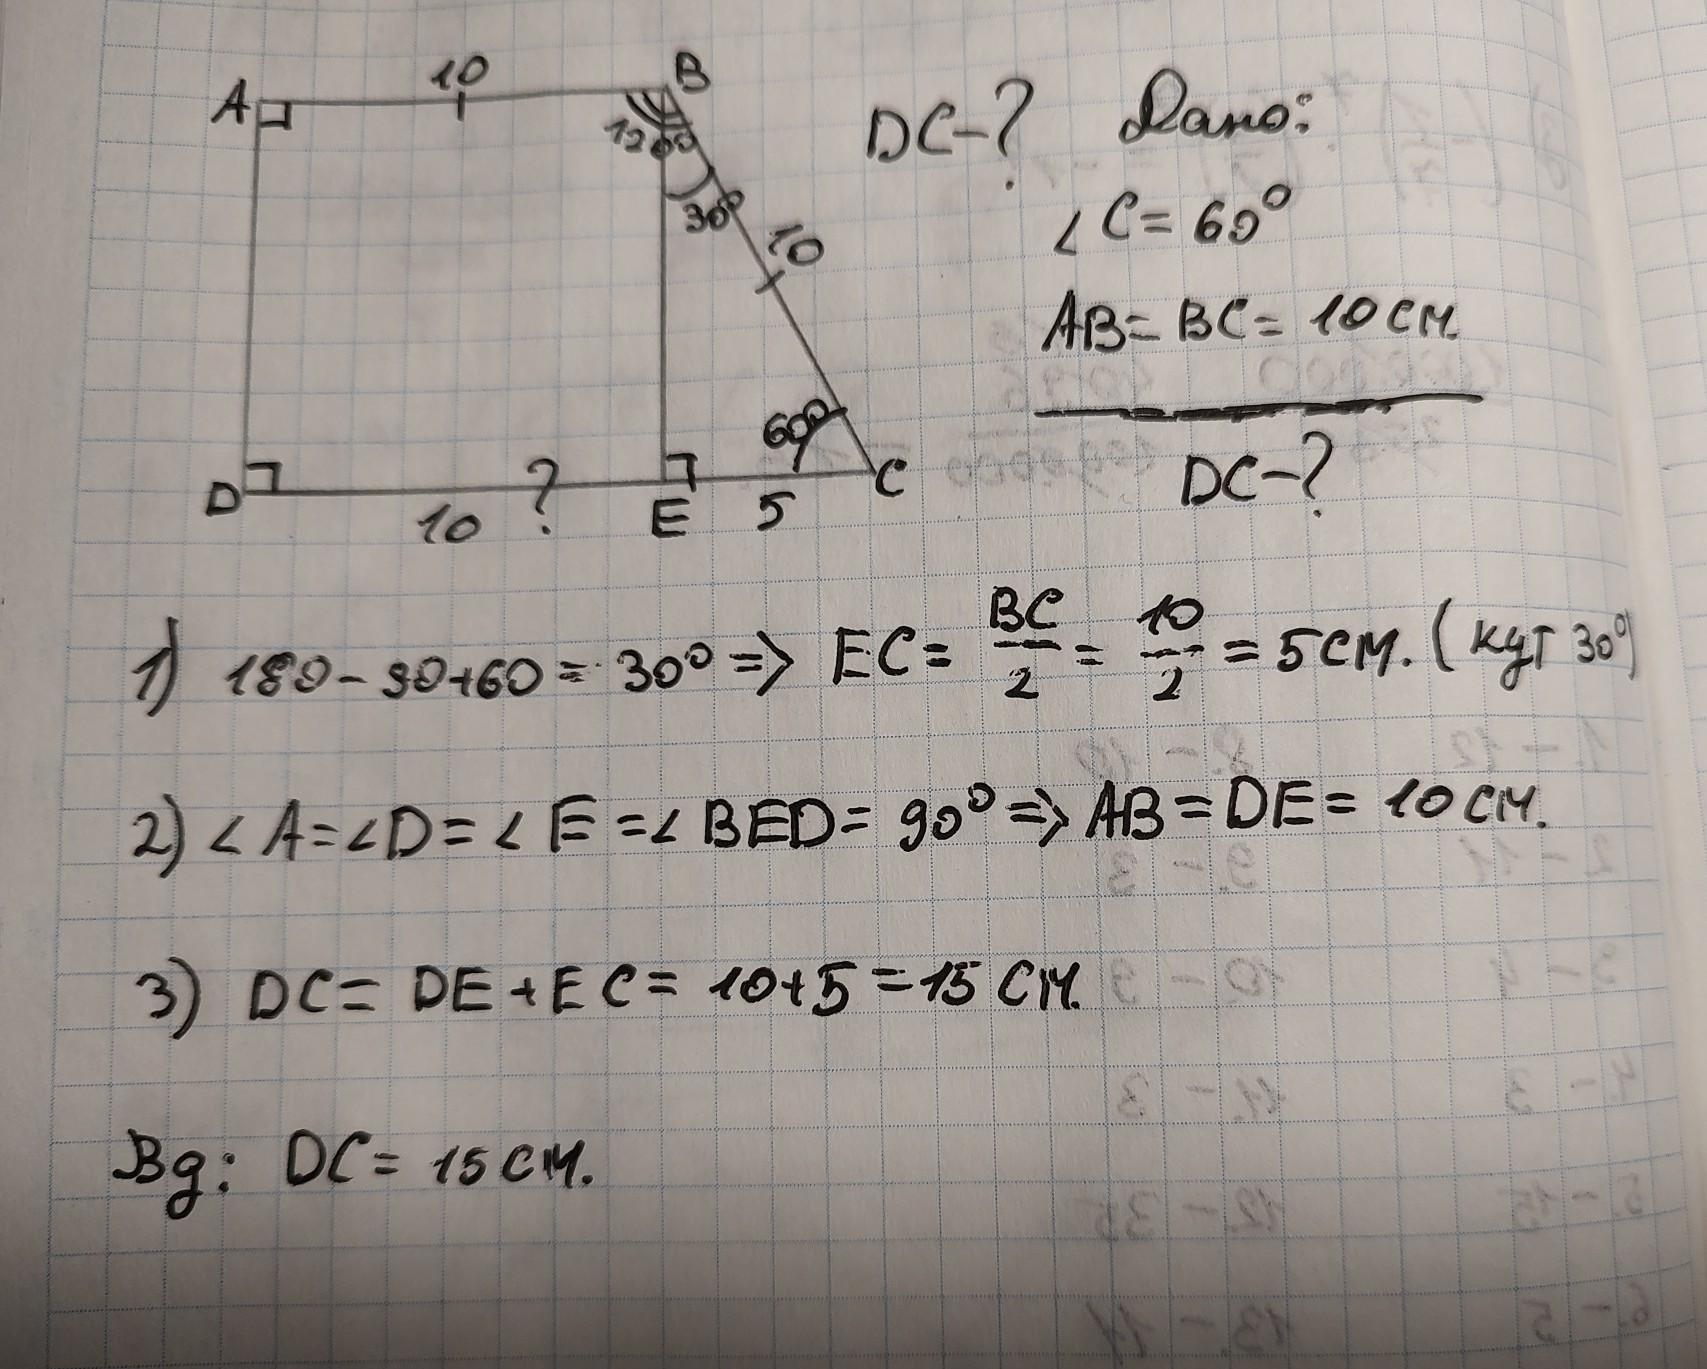 A 10 B
120°
30°
10
60°
D 10 ? E 5 C
DC-? Дано:
∠C = 60°
AB = BC = 10 см.
DC-?
1) 180 - 90+60 = 30° => EC = BC/2 = 10/2 = 5 см. (кут 30°)
2) ∠A = ∠D = ∠E = ∠BED = 90° => AB = DE = 10 см.
3) DC = DE + EC = 10+5 = 15 см.
Вд: DC = 15 см.